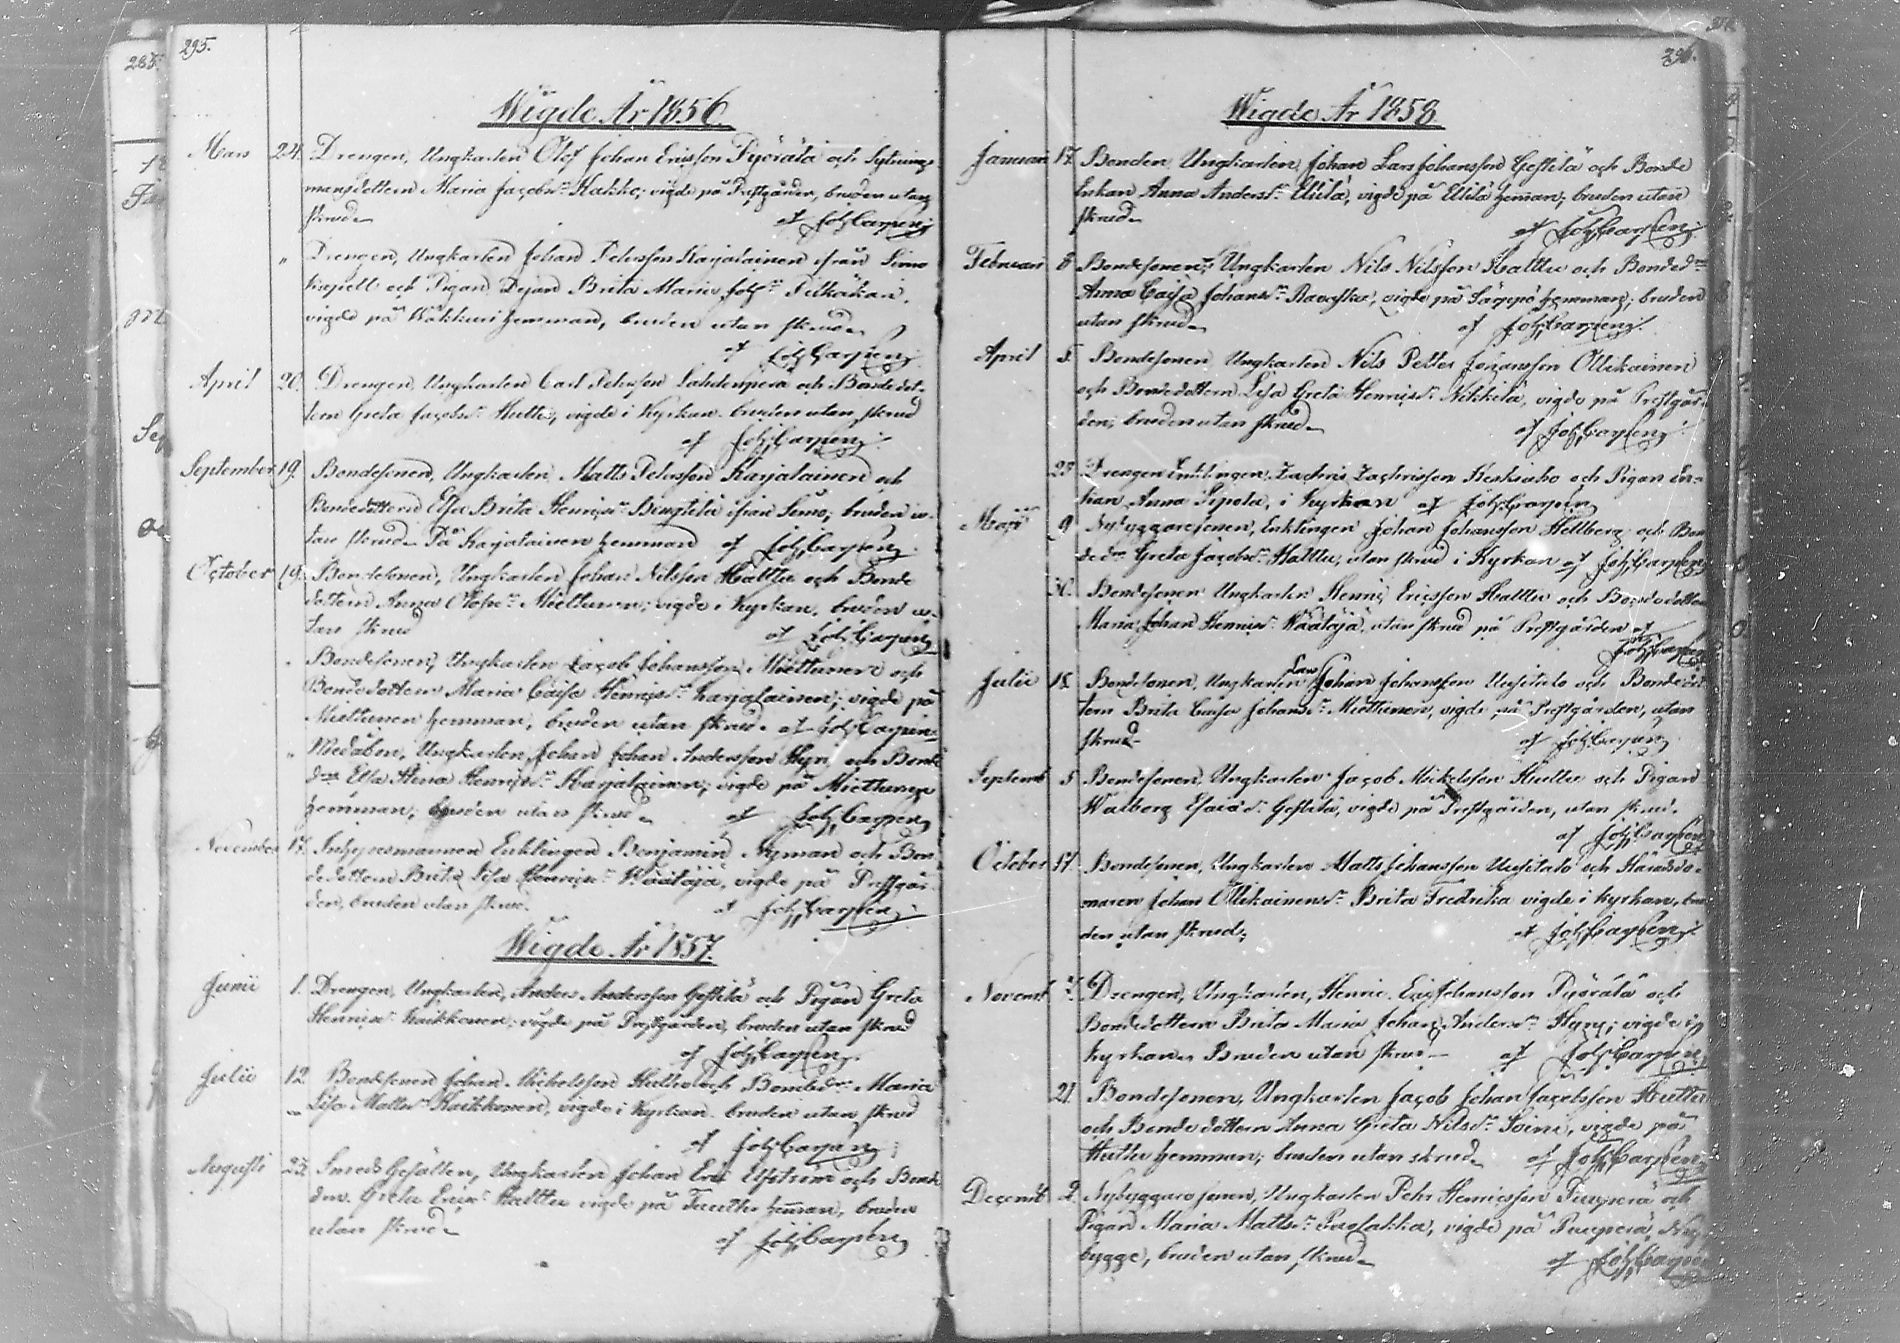 295.
Wigde År 1856.
Mars 24. Drengen, Ungkarlen Olof Johan Ericsson Pyörälä och Sytnings-
mansdottern Maria Jacobsdr Kakko; vigde på Prestgården, bruden utan
skrud
af Joh. Carpén
" Drengen, Ungkarlen Johan Petersson Karjalainen ifrån Simo
Kapell och Pigan Brita Maria
vigde på hemman, bruden utan skrud
af Joh. Carpén
April 20. Drengen, Ungkarlen Carl Petersson Lahdenperä och Bondedot-
tern Greta Jacobsdr Huttu, vigde i Kyrkan, bruden utan skrud
af Joh. Carpén
September 19. Bondesonen, Ungkarlen Matts Petersson Karjalainen och
Bondedottern Elsa Brita Henricsdr ifrån Simo; bruden u-
tan skrud På Karjalainen hemman af Joh. Carpén
October 19. Bondesonen, Ungkarlen Johan Nilsson Hattu och Bonde
dottern Anna Olofsdr Miettunen; vigde i Kyrkan, bruden u-
tan skrud
af Joh. Carpén
" Bondesonen, Ungkarlen Jacob Johansson Miettunen och
Bondedottern Maria Caisa Henricsdr Karjalainen; vigde på
Miettunen hemman, bruden utan skrud. af Joh. Carpén
" Ungkarlen Johan Johan Andersson Hyry och Bonde
dr Elsa Henricsdr Karjalainen; vigde på Miettunen
hemman; bruden utan skrud
af Joh. Carpén
November 17. Inhysesmannen Enklingen Benjamin Nyman och Bon-
dedottern Brita Lisa Henricsdr Wäätäjä, vigde på Prestgår-
den, bruden utan skrud.
af Joh. Carpén
Wigde År 1857.
Junii 1. Drengen, Ungkarlen, Anders Andersson Gestilä och Pigan Greta
Henricsdr Kaikkonen, vigde på Prestgården, bruden utan skrud
af Joh. Carpén
Julii 12. Bondesonen Johan Michelsson Huttu och Bondedr Maria
Lisa Mattsdr Kaikkonen, vigde i Kyrkan bruden utan skrud
af Joh. Carpén
Augusti 23. Smeds Gesällen, Ungkarlen Johan Eric Elfström och Bonde
dr. Greta Ericsdr Hattu vigde på hemman, bruden
utan skrud
af Joh. Carpén
296.
Wigde År 1858
Januari 17. Bonden Ungkarlen Johan Lars Johansson Gestilä och Bonde
Enkan Anna Andersdr Ylilä, vigde på Ylilä hemman; bruden utan
skrud
af Joh. Carpén
Februari 8 Bondesonen, Ungkarlen Nils Nilsson Hattu och Bondedr
Anna Caisa Johansdr vigde på hemman; bruden
utan skrud
af Joh. Carpén
April 5. Bondesonen Ungkarlen Nils Petter Johansson Ollikainen
och Bondedottern Lisa Greta Henricsdr Nikkilä, vigde på Prestgår-
den; bruden utan skrud
af Joh. Carpén
25 Drengen Enklingen Zachris Zachrisson och Pigan En-
kan Anna Sipola, i Kyrkan af Joh. Carpén
Maji 9 Nybyggaresonen, Enklingen Johan Johansson Hellberg och Bon-
dedr Greta Jacobsdr Hattu, utan skrud i Kyrkan af Joh. Carpén
30. Bondesonen Ungkarlen Henric Ericsson Hattu och Bondedottern
Maria Johan Henricsdr Wäätäjä, utan skrud på Prestgården af
Joh. Carpén
Julii 18. Bondesonen, Ungkarlen Lars Johan Johansson Uusitalo och Bondedot-
tern Brita Caisa Johansdr Miettunen, vigde på Prestgården, utan
skrud
af Joh. Carpén
Septemb 5 Bondesonen, Ungkarlen Jacob Mickelsson Huttu och Pigan
Walborg Gestilä, vigde på Prestgården, utan skrud.
af Joh. Carpén
October 17. Bondesonen, Ungkarlen Matts Johansson Uusitalo och Häradsdo-
maren Johan Ollikainensdr Brita Fredrika vigde i kyrkan, bru-
den utan skrud;
af Joh. Carpén
Novemb 7. Drengen, Ungkarlen, Henric Eric Johansson Pyörälä och
Bondedottern Brita Maria Johan Andersdr Hyry; vigde i
Kyrkan. Bruden utan skrud
af Joh. Carpén
21 Bondesonen, Ungkarlen Jacob Johan Jacobsson Huttu
och Bondedottern Anna Greta Nilsdr Soini, vigde på
Huttu hemman; bruden utan skrud
af Joh. Carpén
Decemb 2. Nybyggaresonen, Ungkarlen Pehr Henricsson och
Pigan Maria Mattsdr vigde på Ny-
bygge, bruden utan skrud
af Joh. Carpén